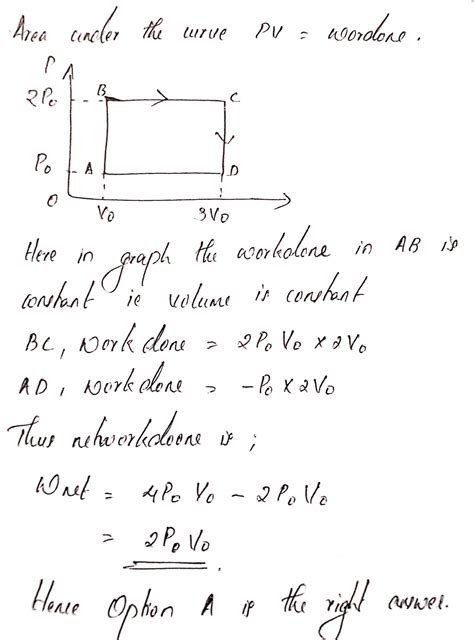 Area under the curve PV = wordone.
P
2P₀ B C
P₀ A D
O V₀ 3V₀
Here in graph the workdone in AB is
constant ie volume is constant
BC, Work done = 2P₀ V₀ × 2V₀
AD, work done = -P₀ × 2V₀
Thus networkdoone is;
Wnet = 4P₀ V₀ - 2P₀ V₀
= 2P₀ V₀.
Hence Option A is the right answer.